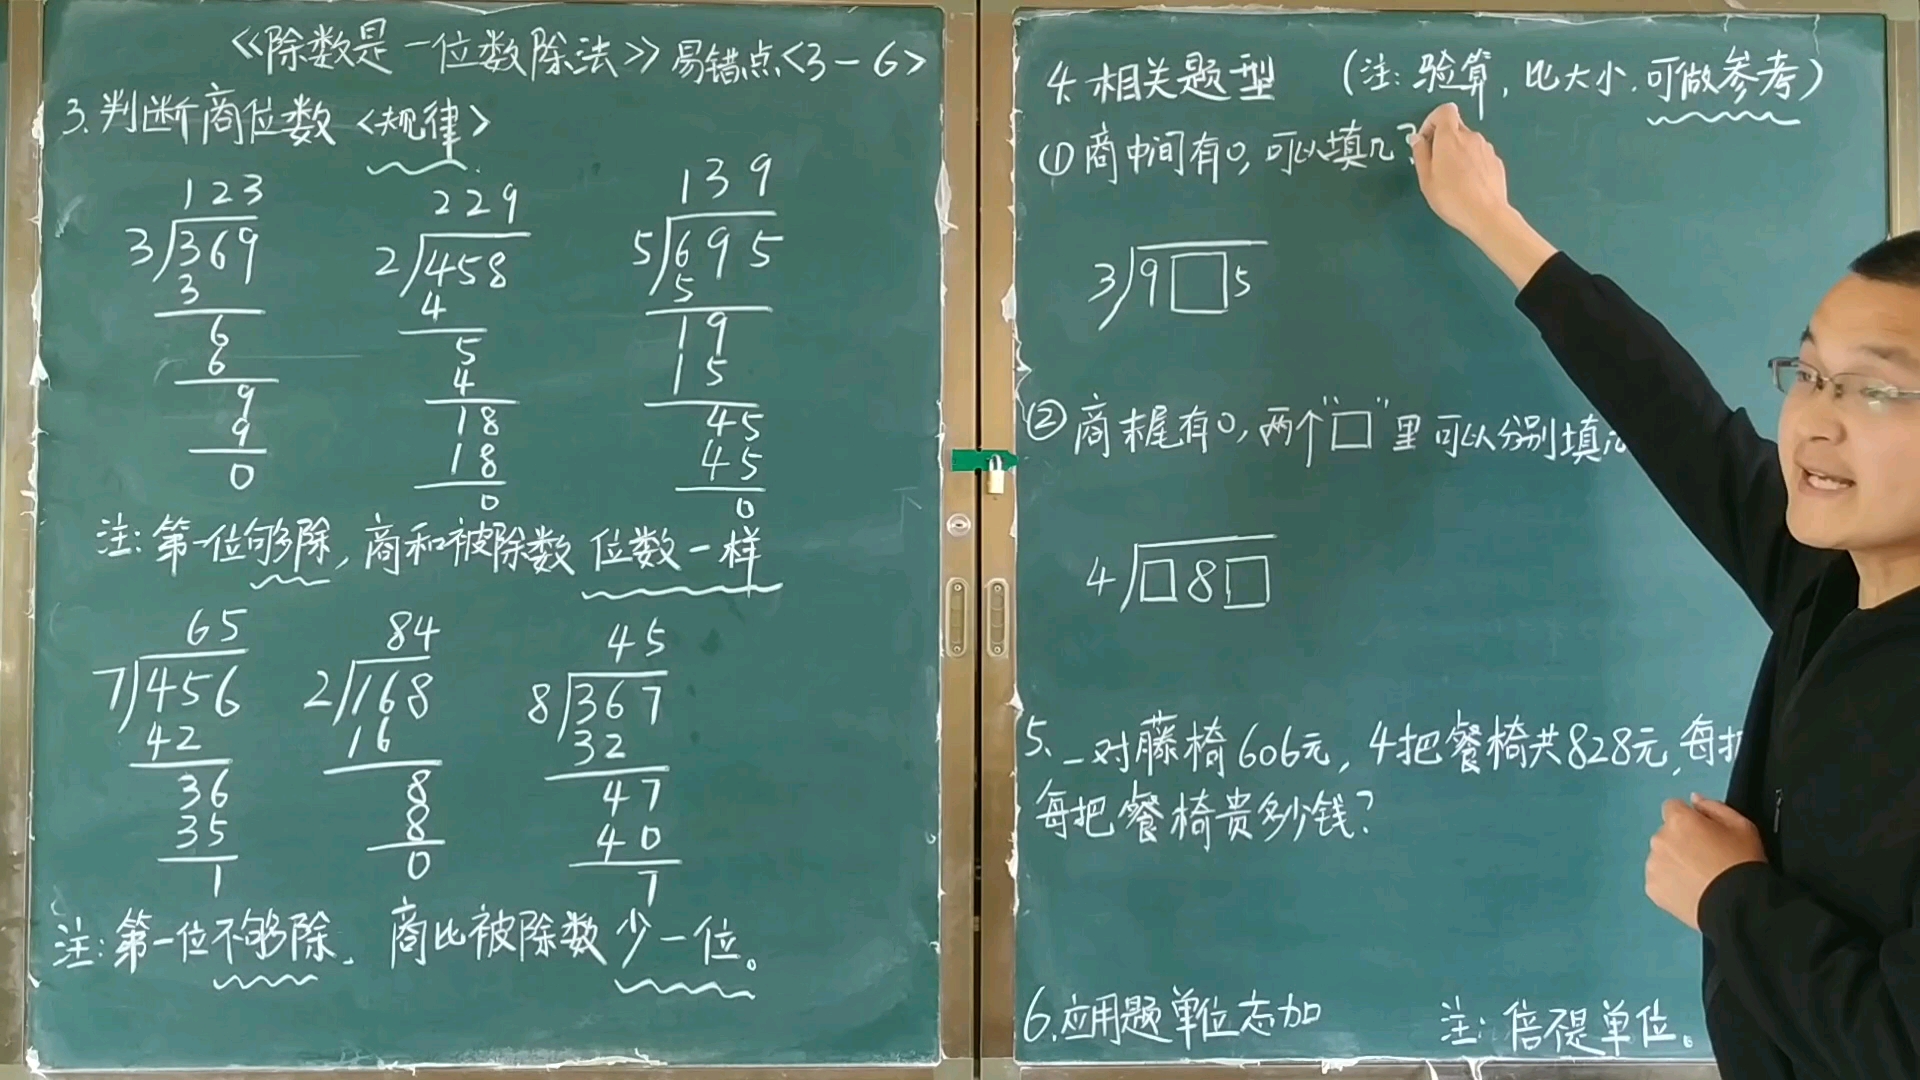 《除数是一位数除法》易错点<3-6>
3.判断商位数<规律>
123
3 369
3
6
6
9
9
0
229
2 458
4
5
4
18
18
0
139
5 695
5
19
15
45
45
0
注:第一位够除,商和被除数位数一样
65
7 456
42
36
35
1
84
2 168
16
8
8
0
45
8 367
32
47
40
7
注:第一位不够除、商比被除数少一位。
4.相关题型 (注:验算,比大小.可做参考)
①商中间有0,可以填几?
3 9□5
②商末尾有0,两个"□"里可以分别填
4 □8□
5、一对藤椅606元,4把餐椅共828元,每
每把餐椅贵多少钱?
6.应用题单位忘加 注:倍不是单位。